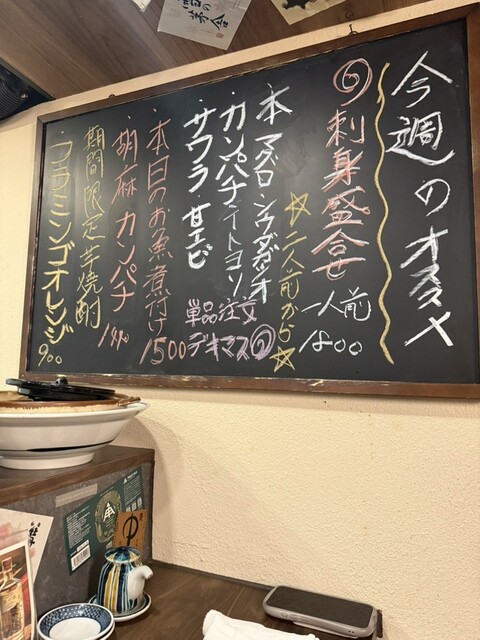 今週のオススメ
刺身盛合せ 一人前 1800
☆二人前から☆
本マグロ シマガツオ
カンパチ イトヨリ
サワラ 甘エビ
単品注文
デキマス
・本日のお魚煮付け 1500
・胡麻カンパチ
期間限定芋焼酎
・フラミンゴオレンジ 900